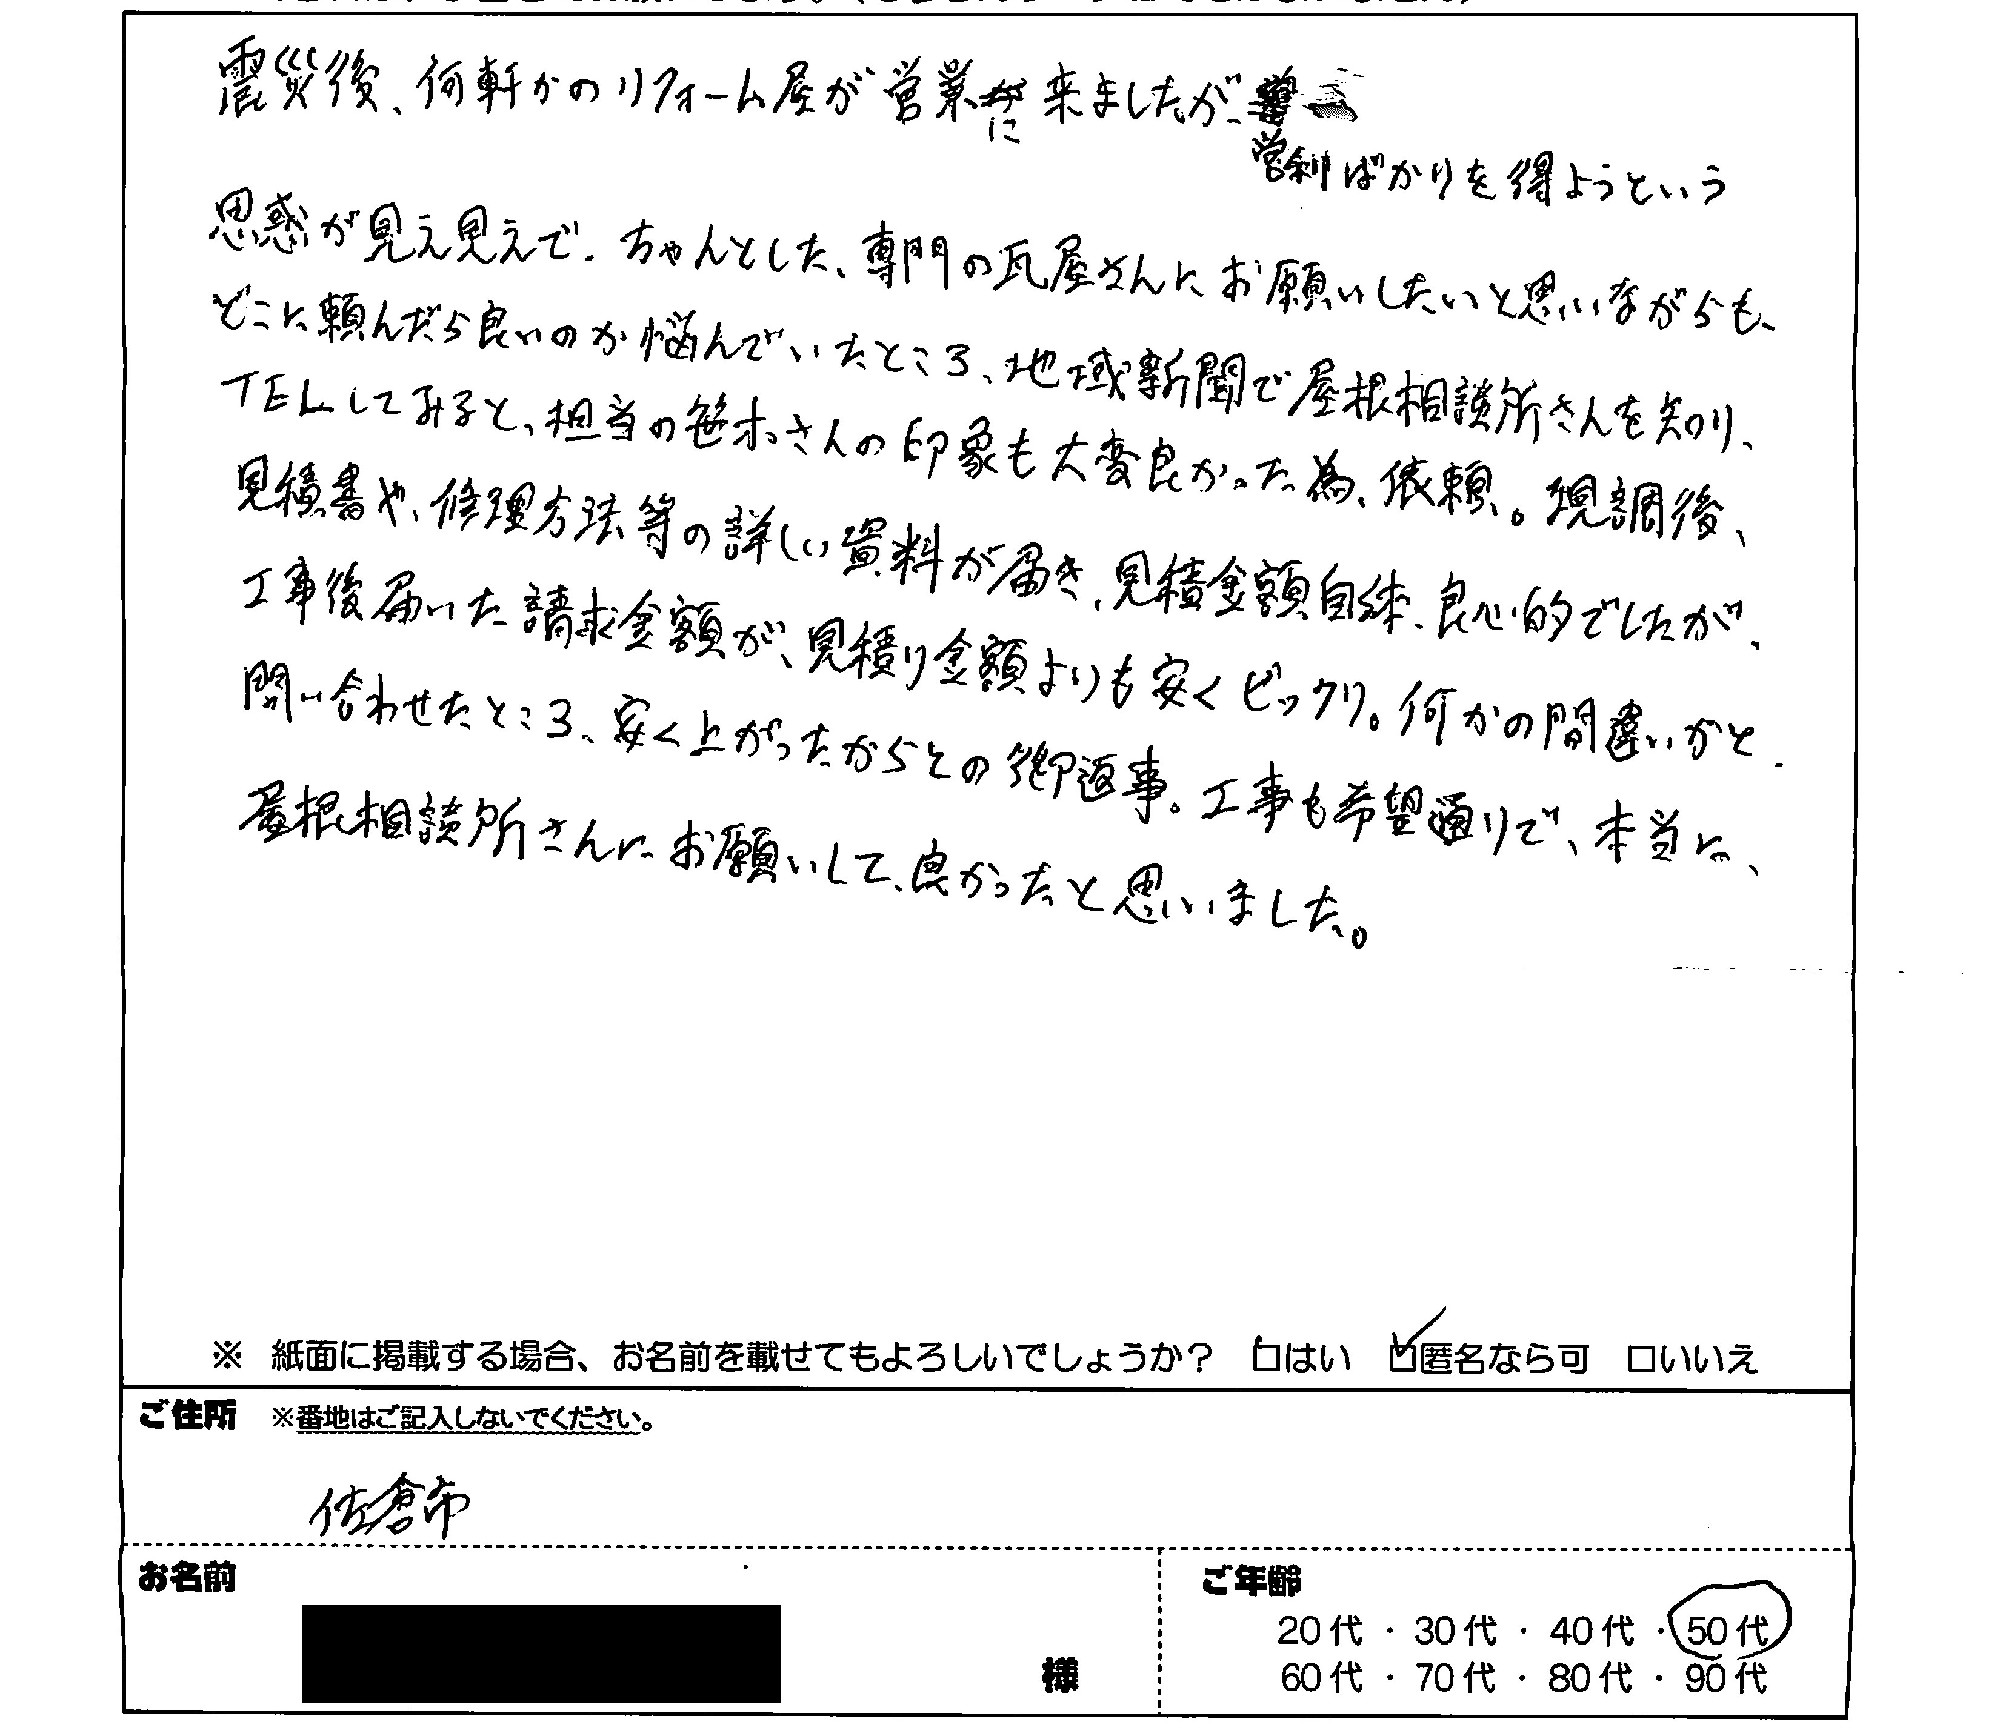 震災後、何軒かのリフォーム屋が営業に来ましたが、
営利ばかりを得ようという
思惑が見え見えで、ちゃんとした、専門の瓦屋さんにお願いしたいと思いながらも、
どこに頼んだら良いのか悩んでいたところ、地域新聞で屋根相談所さんを知り、
TELしてみると、担当の笹木さんの印象も大変良かった為、依頼。現調後、
見積書や、修理方法等の詳しい資料が届き、見積金額自体、良心的でしたが、
工事後届いた請求金額が、見積り金額よりも安くビックリ。何かの間違いかと、
問い合わせたところ、安く上がったからとの御返事。工事も希望通りで、本当に、
屋根相談所さんにお願いして、良かったと思いました。
※ 紙面に掲載する場合、お名前を載せてもよろしいでしょうか？ □はい ☑匿名なら可 □いいえ
ご住所 ※番地はご記入しないでください。
佐倉市
お名前 様
ご年齢
20代・30代・40代・50代
60代・70代・80代・90代